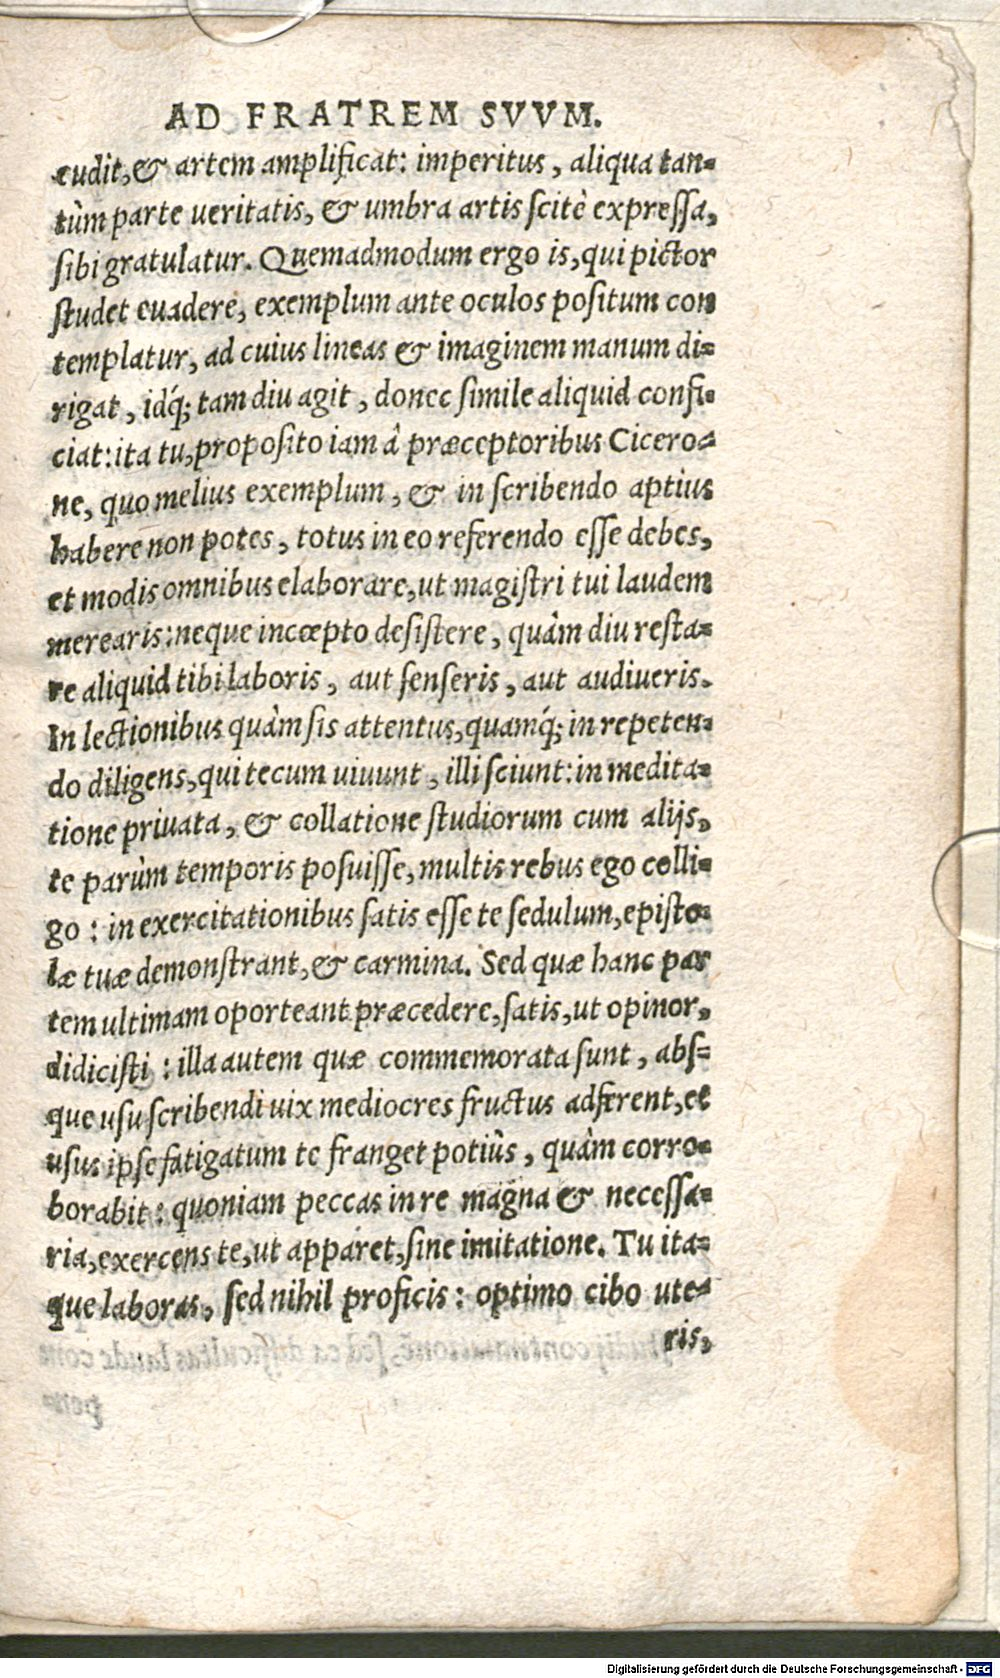 AD FRATREM SVVM.
cudit, & artem amplificat: imperitus, aliqua tan-
tùm parte veritatis, & umbra artis scitè expressa,
sibi gratulatur. Quemadmodum ergo is, qui pictor
studet euadere, exemplum ante oculos positum con
templatur, ad cuius lineas & imaginem manum di-
rigat, idq́; tam diu agit, donec simile aliquid confi-
ciat: ita tu, proposito iam â præceptoribus Cicero-
ne, quo melius exemplum, & in scribendo aptius
habere non potes, totus in eo referendo esse debes,
et modis omnibus elaborare, ut magistri tui laudem
merearis: neque incœpto desistere, quàm diu resta-
re aliquid tibi laboris, aut senseris, aut audiueris.
In lectionibus quàm sis attentus, quamq́; in repeten-
do diligens, qui tecum uiuunt, illi sciunt: in medita-
tione priuata, & collatione studiorum cum alijs,
te parùm temporis posuisse, multis rebus ego colli-
go: in exercitationibus satis esse te sedulum, episto-
læ tuæ demonstrant, & carmina. Sed quæ hanc par
tem ultimam oporteant præcedere, satis, ut opinor,
didicisti: illa autem quæ commemorata sunt, abs-
que usu scribendi uix mediocres fructus adferent, et
usus ipse fatigatum te franget potiûs, quàm corro-
borabit: quoniam peccas in re magna & necessa-
ria, exercens te, ut apparet, sine imitatione. Tu ita-
que laboras, sed nihil proficis: optimo cibo ute-
ris,
Digitalisierung gefördert durch die Deutsche Forschungsgemeinschaft - DFG